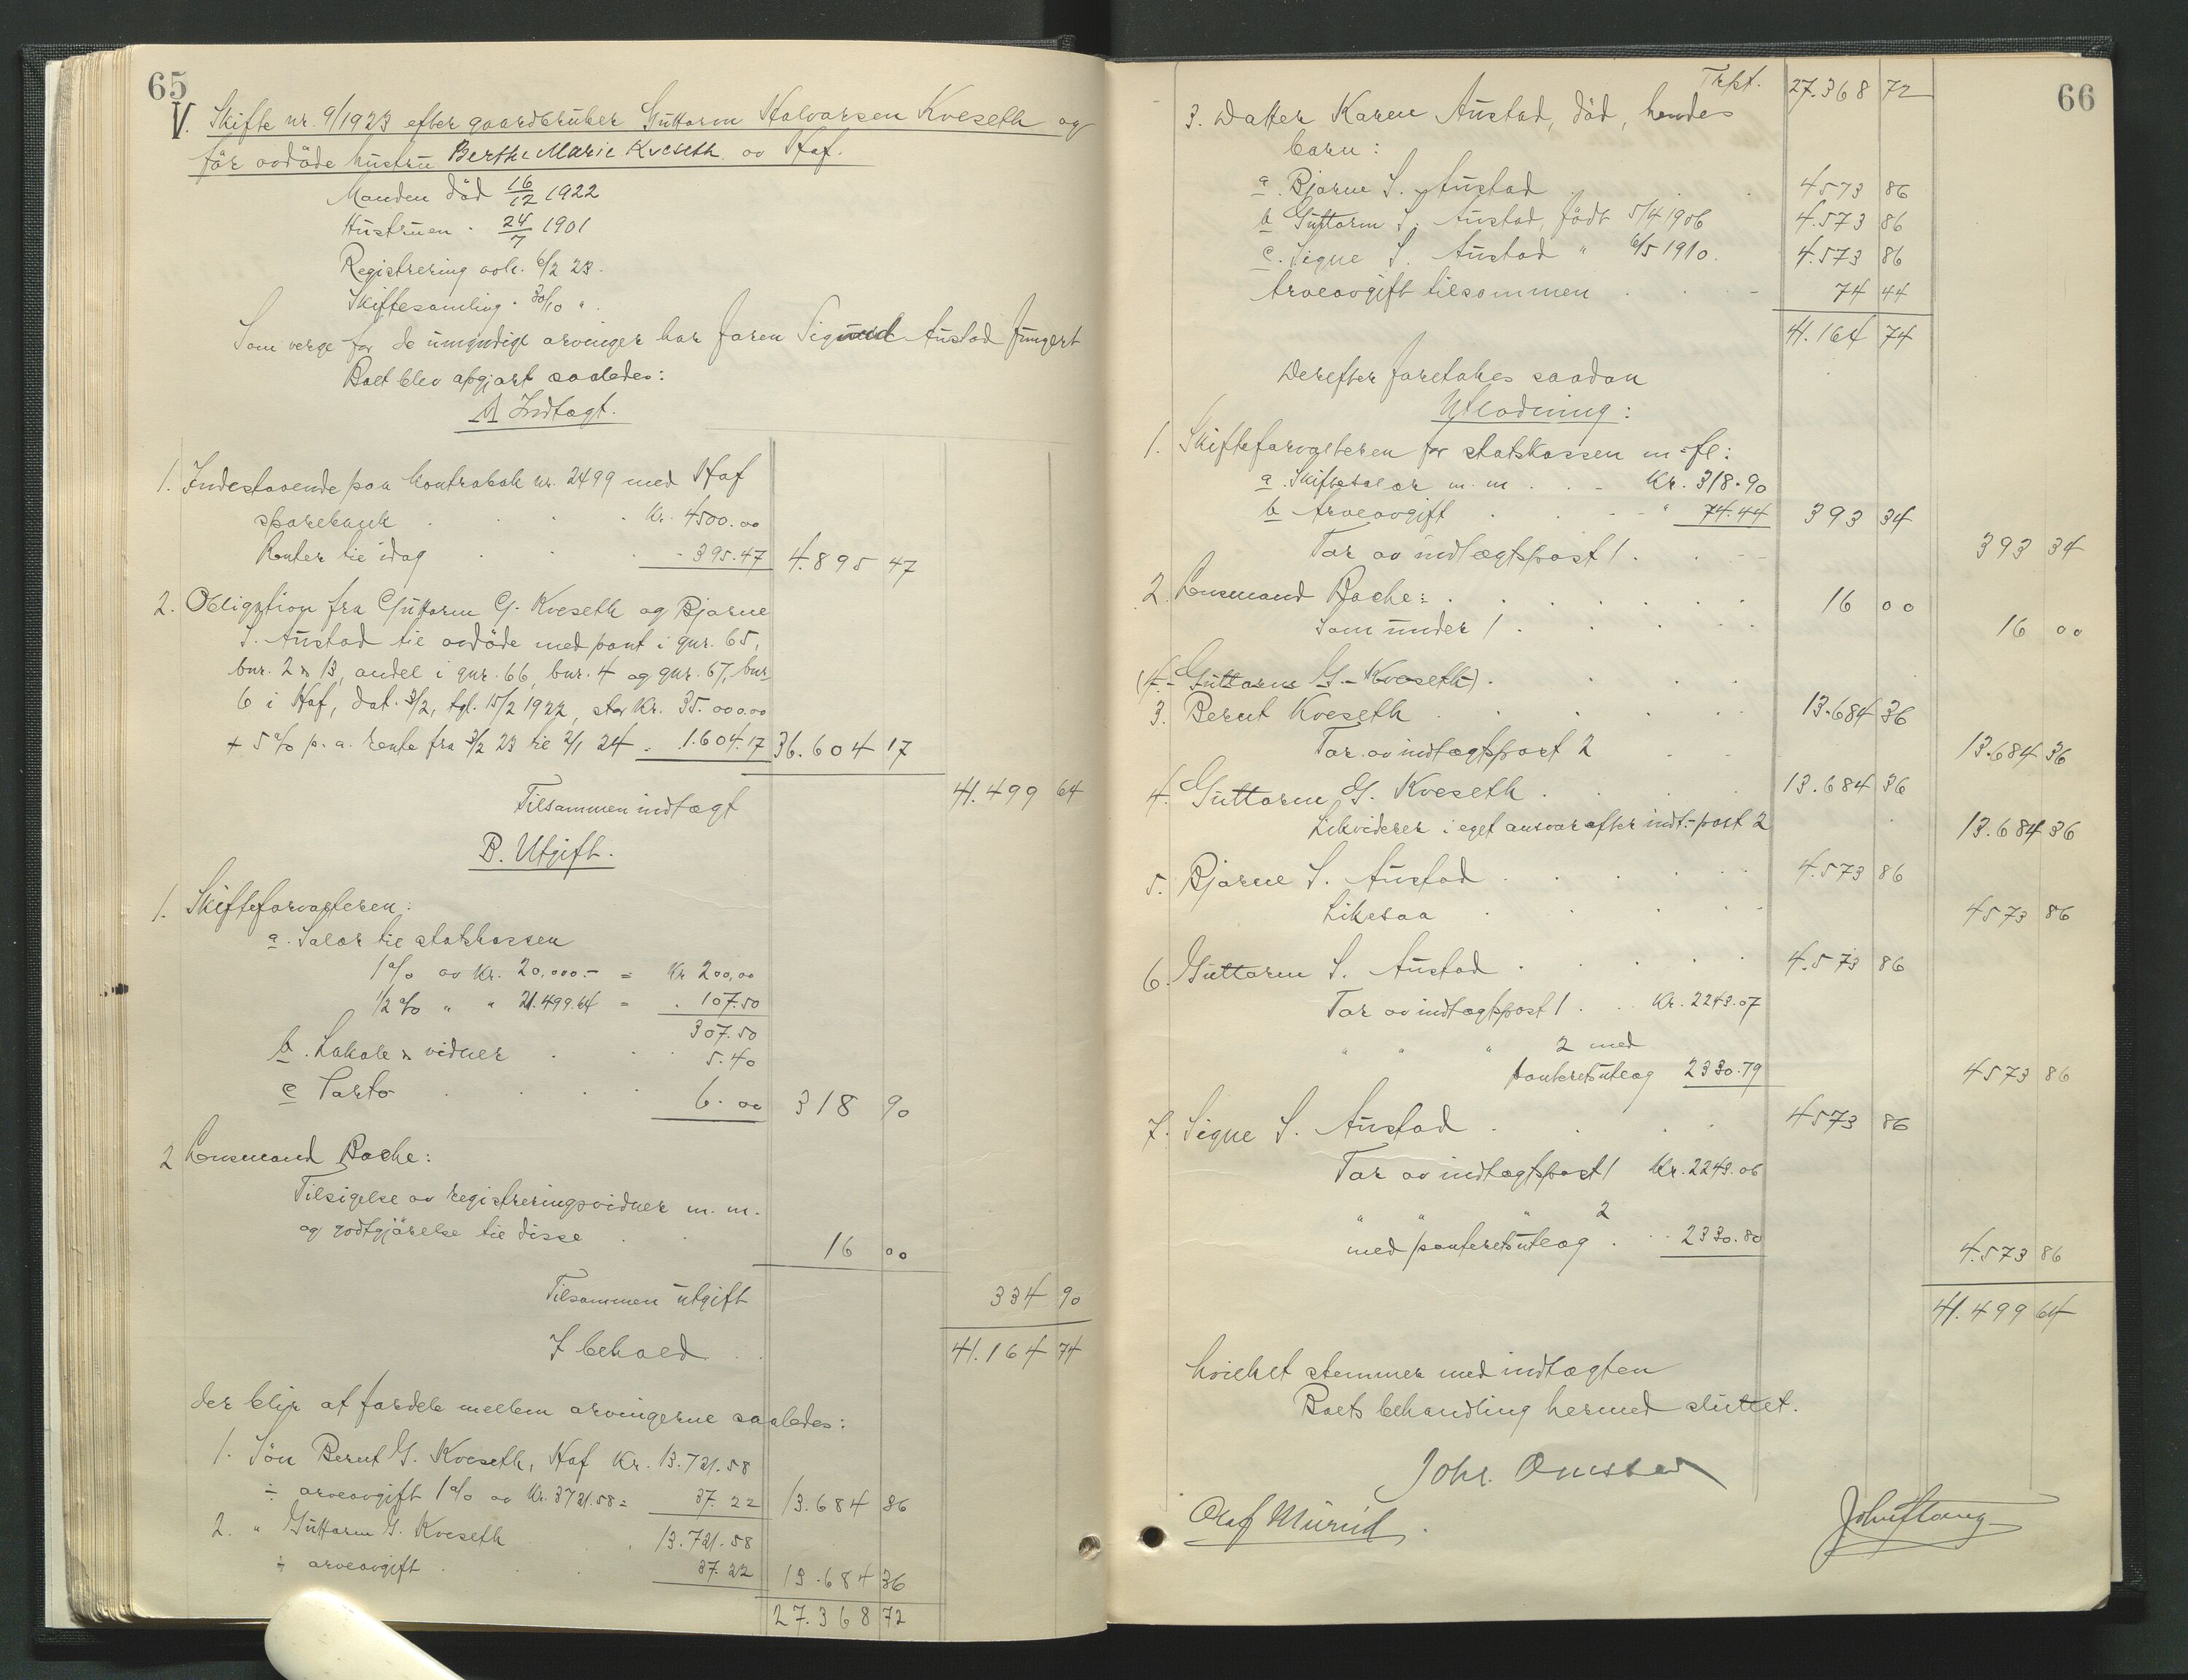 65
V. Skifte nr. 9/1923 efter gaardbruker Guttorm Halvorsen Kveseth og
før avdøde hustru Berthe Marie Kveseth av Haf.
Manden død 16/12 1922
Hustruen · 24/7 1901
Registrering avh. 6/2 23.
Skiftesamling · 30/10 "
Som verge for de umyndige arvinger har faren Sigurd Austad fungert
Boet blev afgjort saaledes:
A Indtægt.
1. Indestaaende paa kontrabok nr. 2499 med Haf
sparebank . . . Kr. 4500.00
Renter til idag . . - 395.47 4.895 47
2. Obligation fra Guttorm G. Kveseth og Bjarne
S. Austad til avdøde med pant i gnr. 65,
bnr. 2 & 13, andel i gnr. 66, bnr. 4 og gnr. 67, bnr.
6 i Haf, dat. 3/2, tgl. 15/2 1922, stor Kr. 35.000.00
+ 5 % p. a. rente fra 3/2 23 til 2/1 24 . 1.604.17 36.604 17
Tilsammen indtægt 41.499 64
B. Utgift.
1. Skifteforvalteren:
a. Salær til statskassen
1 % av Kr. 20,000.- = Kr 200,00
1/2 % " " 21.499.64 = . 107.50
307.50
b. Lokale & vidner . . 5.40
c Porto . . . 6.00 318 90
2 Lensmand Bache:
Tilsigelse av registreringsvidner m. m.
og godtgjørelse til disse . . 16 00
Tilsammen utgift 334 90
I behold . . 41.164 74
der blir at fordele mellem arvingerne saaledes:
1. Søn Bernt G. Kveseth, Haf Kr. 13.721.58
÷ arveavgift 1 % av Kr. 3721.58 = 37.22 13.684 36
2. " Guttorm G. Kveseth . 13.721.58
÷ arveavgift . . 37.22 13.684 36
27.368 72
66
Trpt. 27.368 72
3. Datter Karen Austad, død, hendes
barn:
a. Bjarne S. Austad . . 4573 86
b Guttorm S. Austad, født 5/4 1906 4.573 86
c. Signe S. Austad " 6/5 1910. 4.573 86
Arveavgift tilsammen . . - 74 44
41.164 74
Derefter foretakes saadan
Utlodning:
1. Skifteforvalteren for statskassen m. fl:
a. Skiftesalær m. m . . - Kr. 318.90
b Arveavgift . . - " 74.44 393 34
Tar av indtægtspost 1 . . - - 393 34
2. Lensmand Bache: . . . . . 16 00
Som under 1 . . . . 16 00
(4. Guttorm G. Kveseth) . . .
3. Bernt Kveseth . . . . 13.684 36
Tar av indtægtspost 2 . . 13.684 36
4. Guttorm G. Kveseth . . . 13.684 36
Likviderer i eget ansvar efter indt.-post 2 13.684 36
5. Bjarne S. Austad . . . . 4.573 86
Likesaa . . . . 4573 86
6. Guttorm S. Austad . . . . 4.573 86
Tar av indtægtspost 1 . . Kr. 2243.07
" " " 2 med
panteretsutlæg 2330.79 4573 86
7. Signe S. Austad . . . . 4573 86
Tar av indtægtspost 1 Kr. 2243.06
" " " 2
med panteretsutlæg . . . 2330.80 4.573 86
41.499 64
hvilket stemmer med indtægten
Boets behandling hermed sluttet.
Olaf Murud.